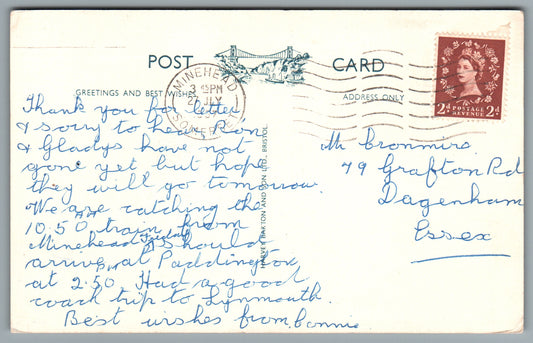 POST CARD
GREETINGS AND BEST WISHES
ADDRESS ONLY
MINEHEAD
3 15PM
JLY
SOMERSET
2d POSTAGE REVENUE 2d
HARVEY BARTON AND SON LTD., BRISTOL
Thank you for letter
& sorry to hear Ron
& Gladys have not
gone yet but hope
they will go tomorrow.
We are catching the
10.50 AM train from
Minehead Friday & should
arrive at Paddington
at 2.50 PM. Had a good
coach trip to Lynmouth.
Best wishes from Connie
Mr Crommers
79 Grafton Rd
Dagenham
Essex